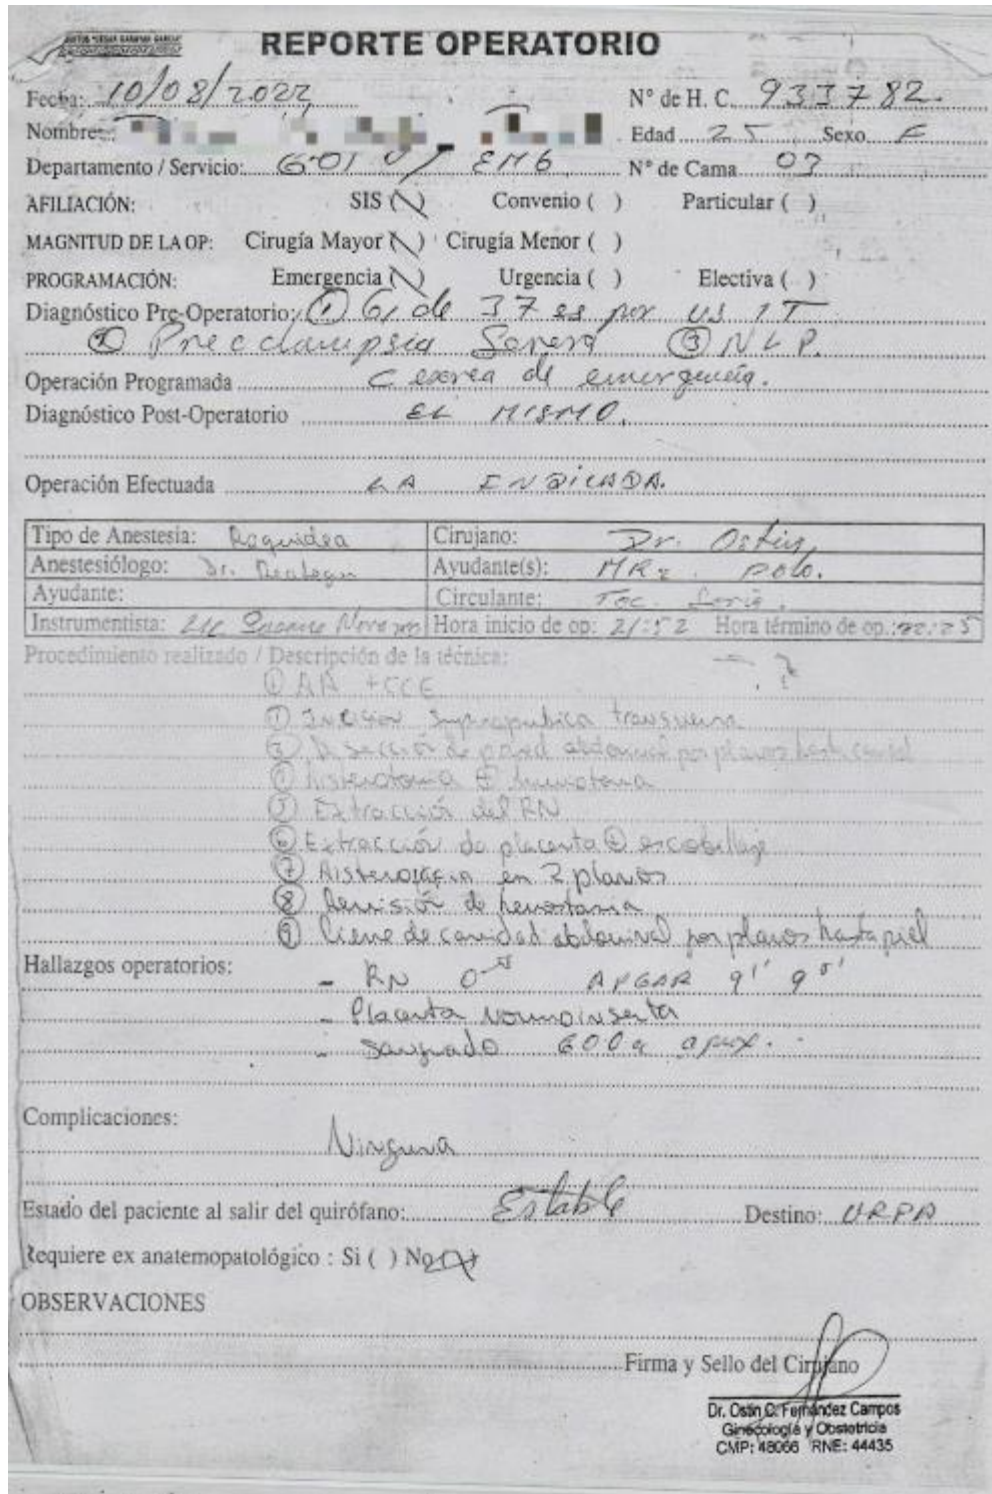 REPORTE OPERATORIO
Fecha: 10/08/2022 N° de H. C. 933782.
Nombre: Edad 25 Sexo F
Departamento / Servicio: N° de Cama 03
AFILIACIÓN: SIS (\) Convenio ( ) Particular ( )
MAGNITUD DE LA OP: Cirugía Mayor (\) Cirugía Menor ( )
PROGRAMACIÓN: Emergencia (\) Urgencia ( ) Electiva ( )
Diagnóstico Pre-Operatorio: ① G1 de 37 ss por US 1T
② Preeclampsia Severa ③ NLP.
Operación Programada Cesarea de emergencia.
Diagnóstico Post-Operatorio EL MISMO.
Operación Efectuada LA INDICADA.
Tipo de Anestesia: Raquidea Cirujano: Dr. Ostin
Anestesiólogo: Dr. Ayudante(s): MR2 Polo.
Ayudante: Circulante: Tec.
Instrumentista: Lic Hora inicio de op: 21:52 Hora término de op.: 22:25
Procedimiento realizado / Descripción de la técnica:
① AA + CCE
Incision suprapubica transversa
③ Disección de pared abdominal por planos hasta cavidad
④ Histerotomia ⊕ amniotomia
⑤ Extracción del RN
⑥ Extracción de placenta ⊕ escobillaje
⑦ Histerorrafia en 2 planos
⑧ Revisión de hemostasia
⑨ Cierre de cavidad abdominal por planos hasta piel
Hallazgos operatorios:
- RN APGAR 9 1' 9 5'
- Placenta normoinserta
- Sangrado 600 aprox.
Complicaciones:
Ninguna
Estado del paciente al salir del quirófano: Estable Destino: URPA
Requiere ex anatemopatológico : Si ( ) No (X)
OBSERVACIONES
Firma y Sello del Cirujano
Dr. Ostin C. Fernández Campos
Ginecología y Obstetricia
CMP: 48066 RNE: 44435